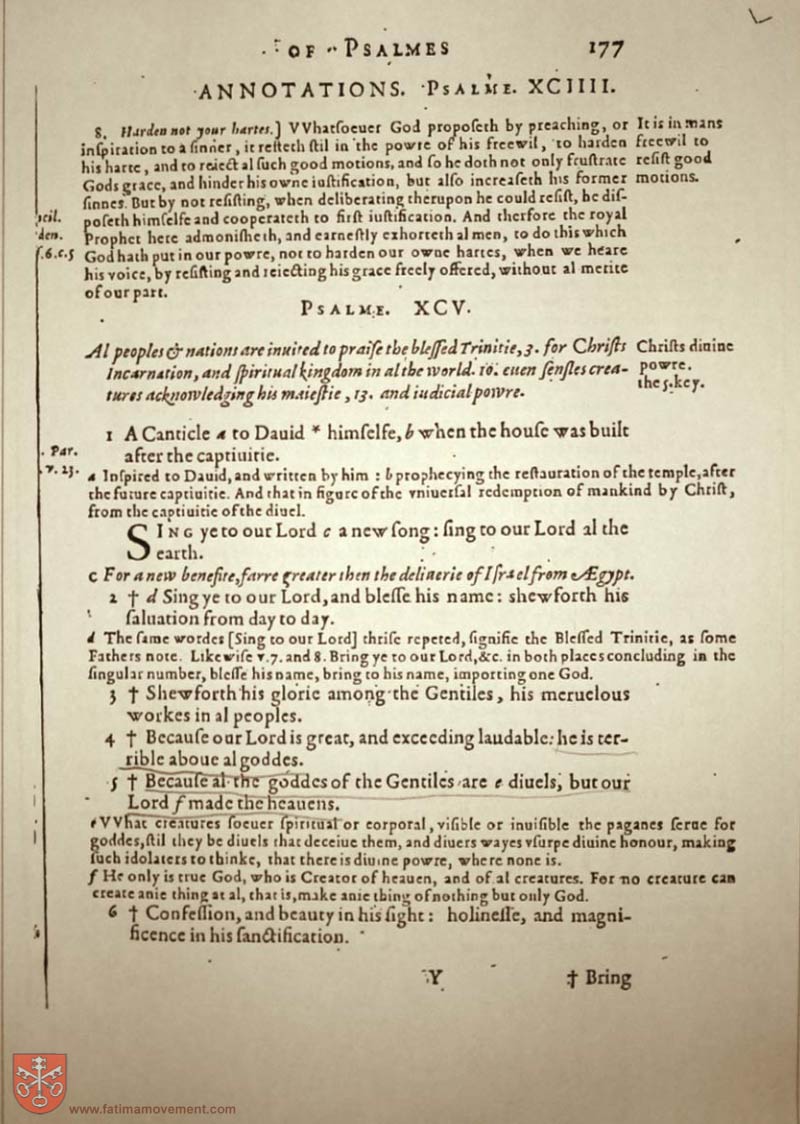 OF PSALMES 177
ANNOTATIONS. PSALME. XCIIII.
8. Harden not your hartes.] VVhatſoeuer God propoſeth by preaching, or
inſpiration to a ſinner, it reſteth ſtil in the powre of his freewil, to harden
his harte, and to reiect al ſuch good motions, and ſo he doth not only fruſtrate
Gods grace, and hinder his owne iuſtification, but alſo increaſeth his former
ſinnes. But by not reſiſting, when deliberating therupon he could reſiſt, he diſ-
poſeth himſelfe and cooperateth to firſt iuſtification. And therfore the royal
Prophet here admoniſheth, and earneſtly exhorteth al men, to do this which
God hath put in our powre, not to harden our owne hartes, when we heare
his voice, by reſiſting and reiecting his grace freely offered, without al merite
of our part.
It is in mans
freewil to
reſiſt good
motions.
den.
ſ.6.c.5
PSALME. XCV.
Al peoples & nations are inuited to praiſe the bleſſed Trinitie, 3. for Chriſts
Incarnation, and ſpiritual kingdom in al the world. 10. euen ſenſles crea-
tures acknowledging his maieſtie, 13. and iudicial powre.
Chriſts diuine
powre.
the 5. key.
1 A Canticle a to Dauid * himſelfe, b when the houſe was built
after the captiuitie.
Par.
v. 23.
a Inſpired to Dauid, and written by him : b prophecying the reſtauration of the temple, after
the future captiuitie. And that in figure of the vniuerſal redemption of mankind by Chriſt,
from the captiuitie of the diuel.
SING ye to our Lord c a new ſong: ſing to our Lord al the
earth.
c For a new benefite, farre greater then the deliuerie of Iſrael from Ægypt.
2 † d Sing ye to our Lord, and bleſſe his name: shewforth his
ſaluation from day to day.
d The ſame wordes [Sing to our Lord] thriſe repeted, ſignifie the Bleſſed Trinitie, as ſome
Fathers note. Likewiſe v. 7. and 8. Bring ye to our Lord, &c. in both places concluding in the
ſingular number, bleſſe his name, bring to his name, importing one God.
3 † Shewforth his glorie among the Gentiles, his meruelous
workes in al peoples.
4 † Becauſe our Lord is great, and exceeding laudable: he is ter-
rible aboue al goddes.
5 † Becauſe al the goddes of the Gentiles are e diuels, but our
Lord f made the heauens.
e VVhat creatures ſoeuer ſpiritual or corporal, viſible or inuiſible the paganes ſerue for
goddes, ſtil they be diuels that deceiue them, and diuers wayes vſurpe diuine honour, making
ſuch idolaters to thinke, that there is diuine powre, where none is.
f He only is true God, who is Creator of heauen, and of al creatures. For no creature can
create anie thing at al, that is, make anie thing of nothing but only God.
6 † Confeſſion, and beauty in his ſight: holineſſe, and magni-
ficence in his ſanctification.
Y † Bring
www.fatimamovement.com